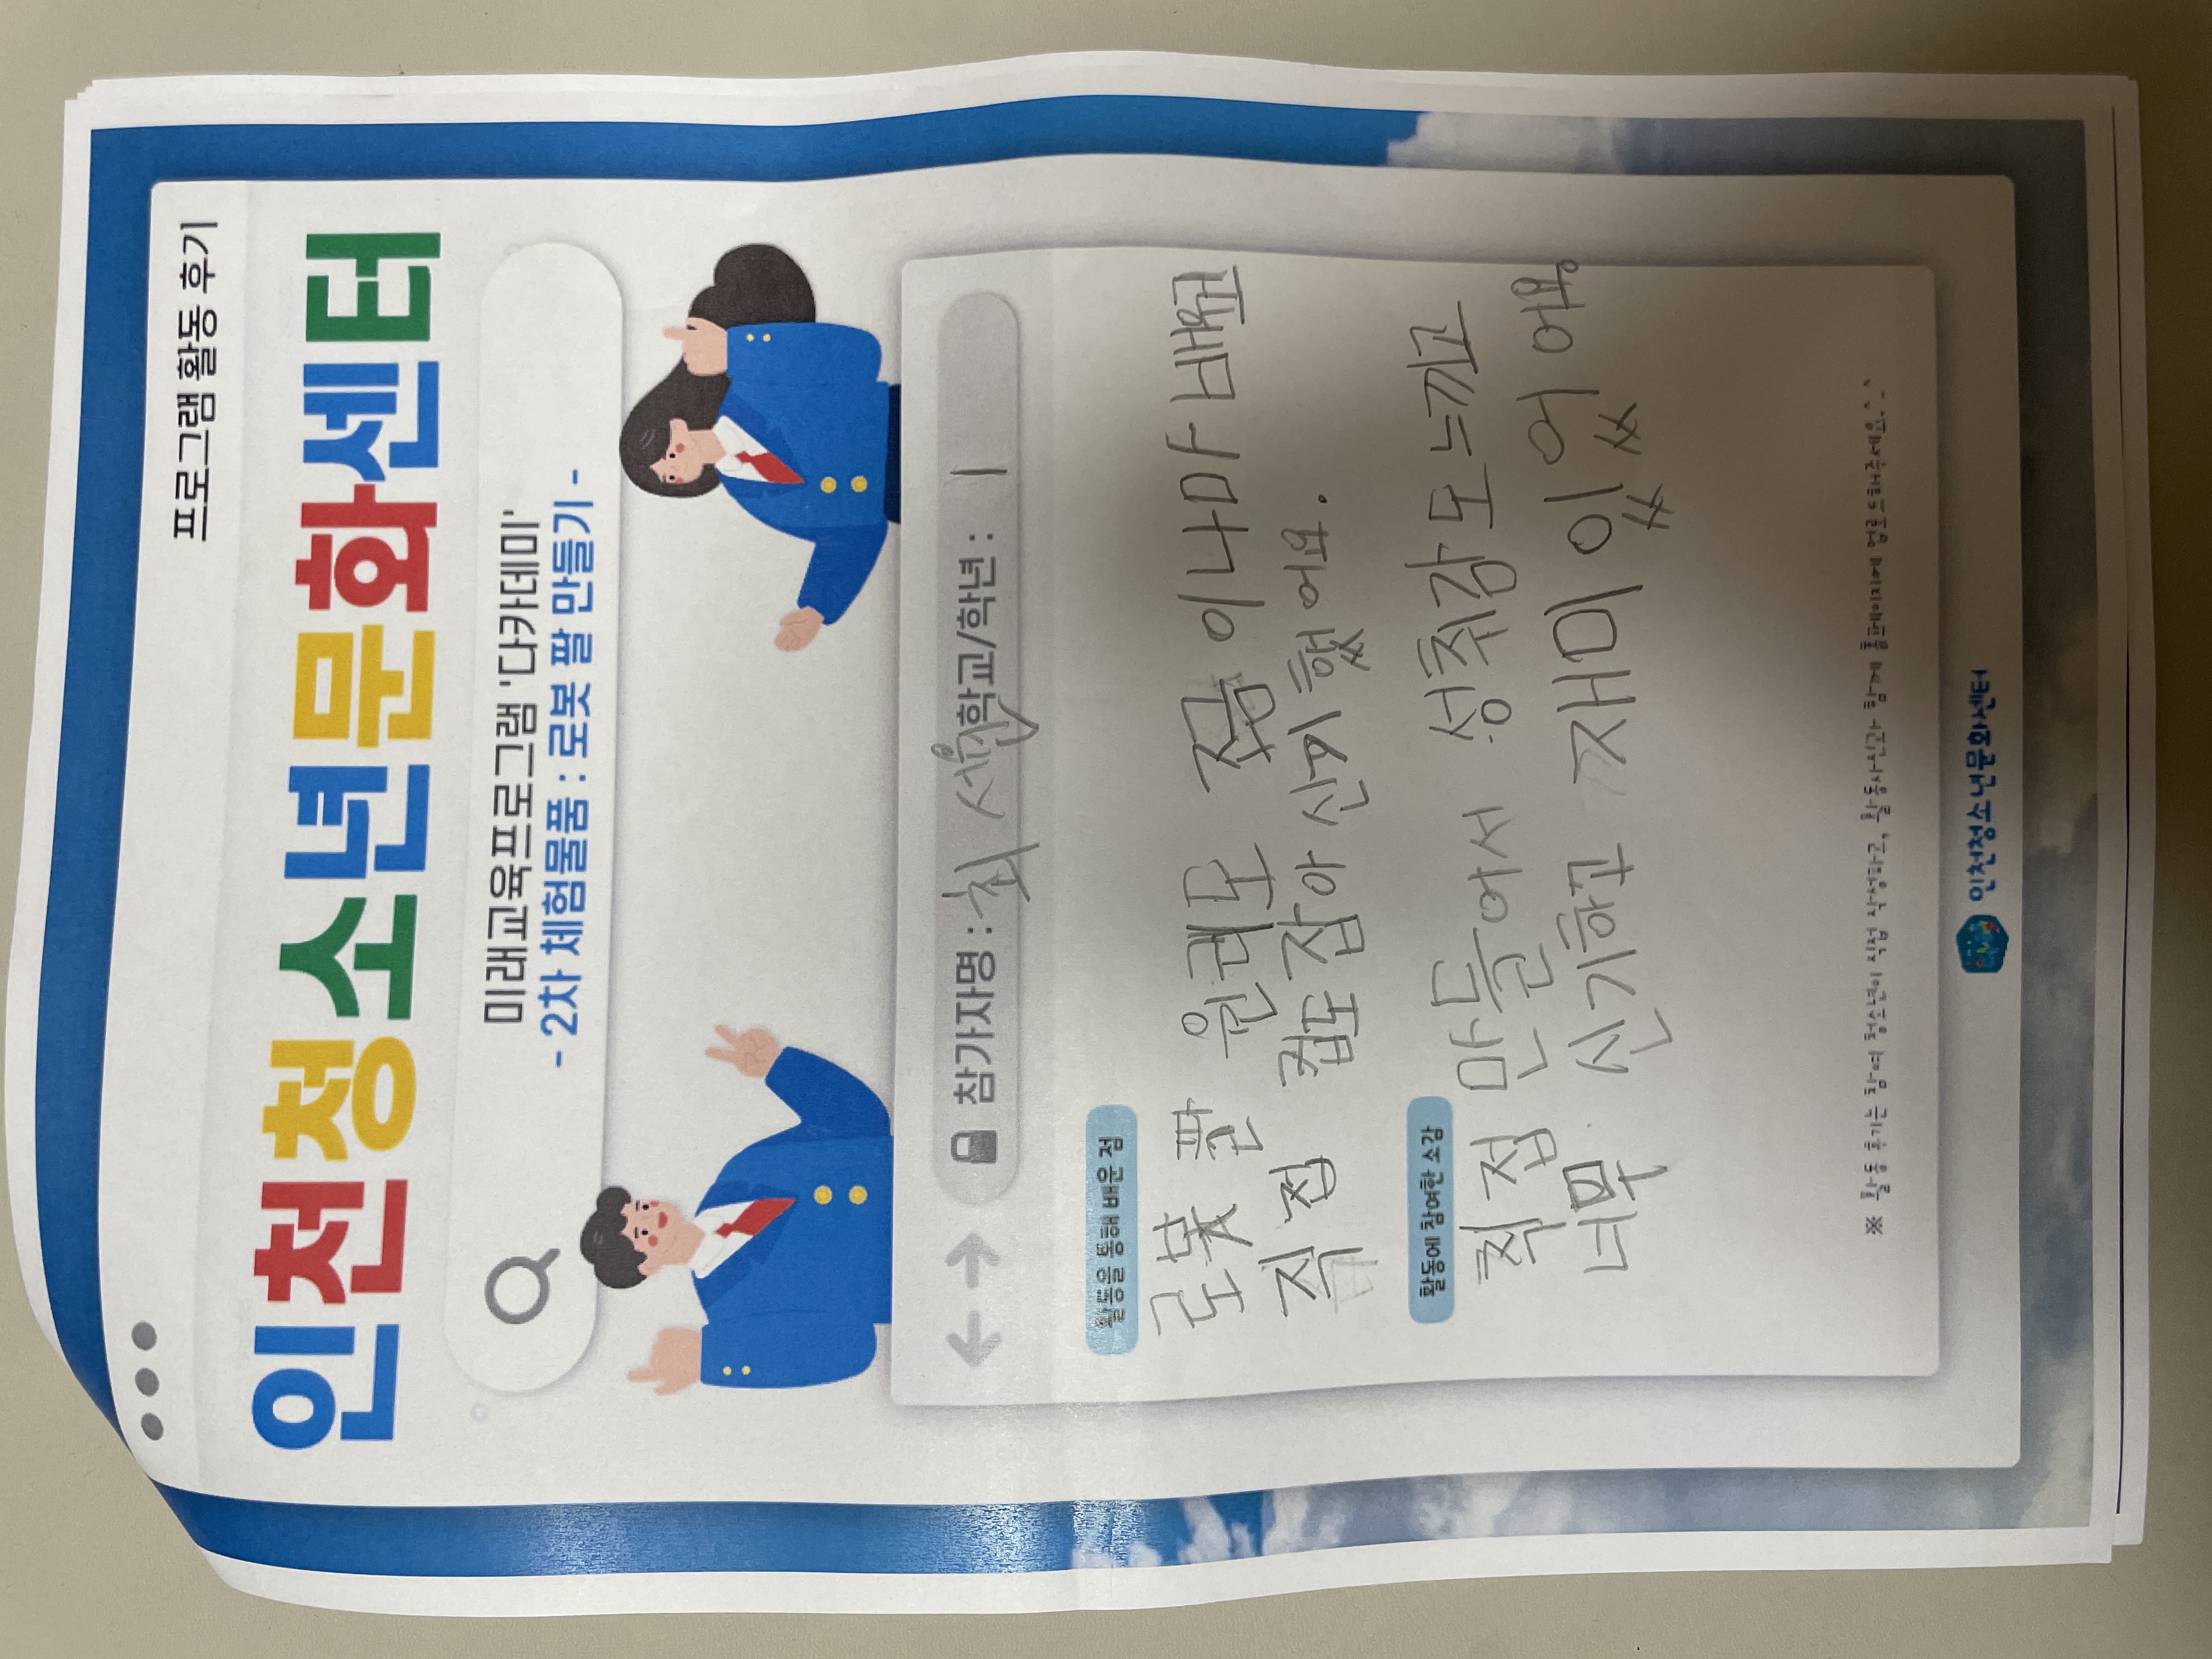 프로그램 활동 후기
인천청소년문화센터
미래교육프로그램 '다카데미'
- 2차 체험물품 : 로봇 팔 만들기 -
참가자명 : 최서 학교/학년 : 1
활동을 통해 배운 점
로봇 팔 원리도 쪼금이나마 배웠고
직접 컵도 잡아 신기했어요.
활동에 참여한 소감
직접 만들어서 성취감도 느끼고
너무 신기하고 재미있었어요.
※ 활동 후기는 참여 청소년이 직접 작성하고, 활동사진과 함께 홈페이지에 업로드해주세요.^_^
인천청소년문화센터